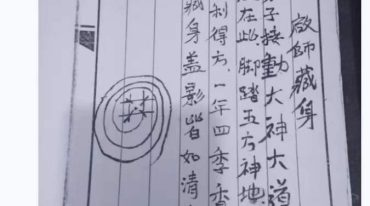 啟師藏身
子接動大神大道
在此脚踏五方神地
利得方、一年四季香
藏身盖影皆如清